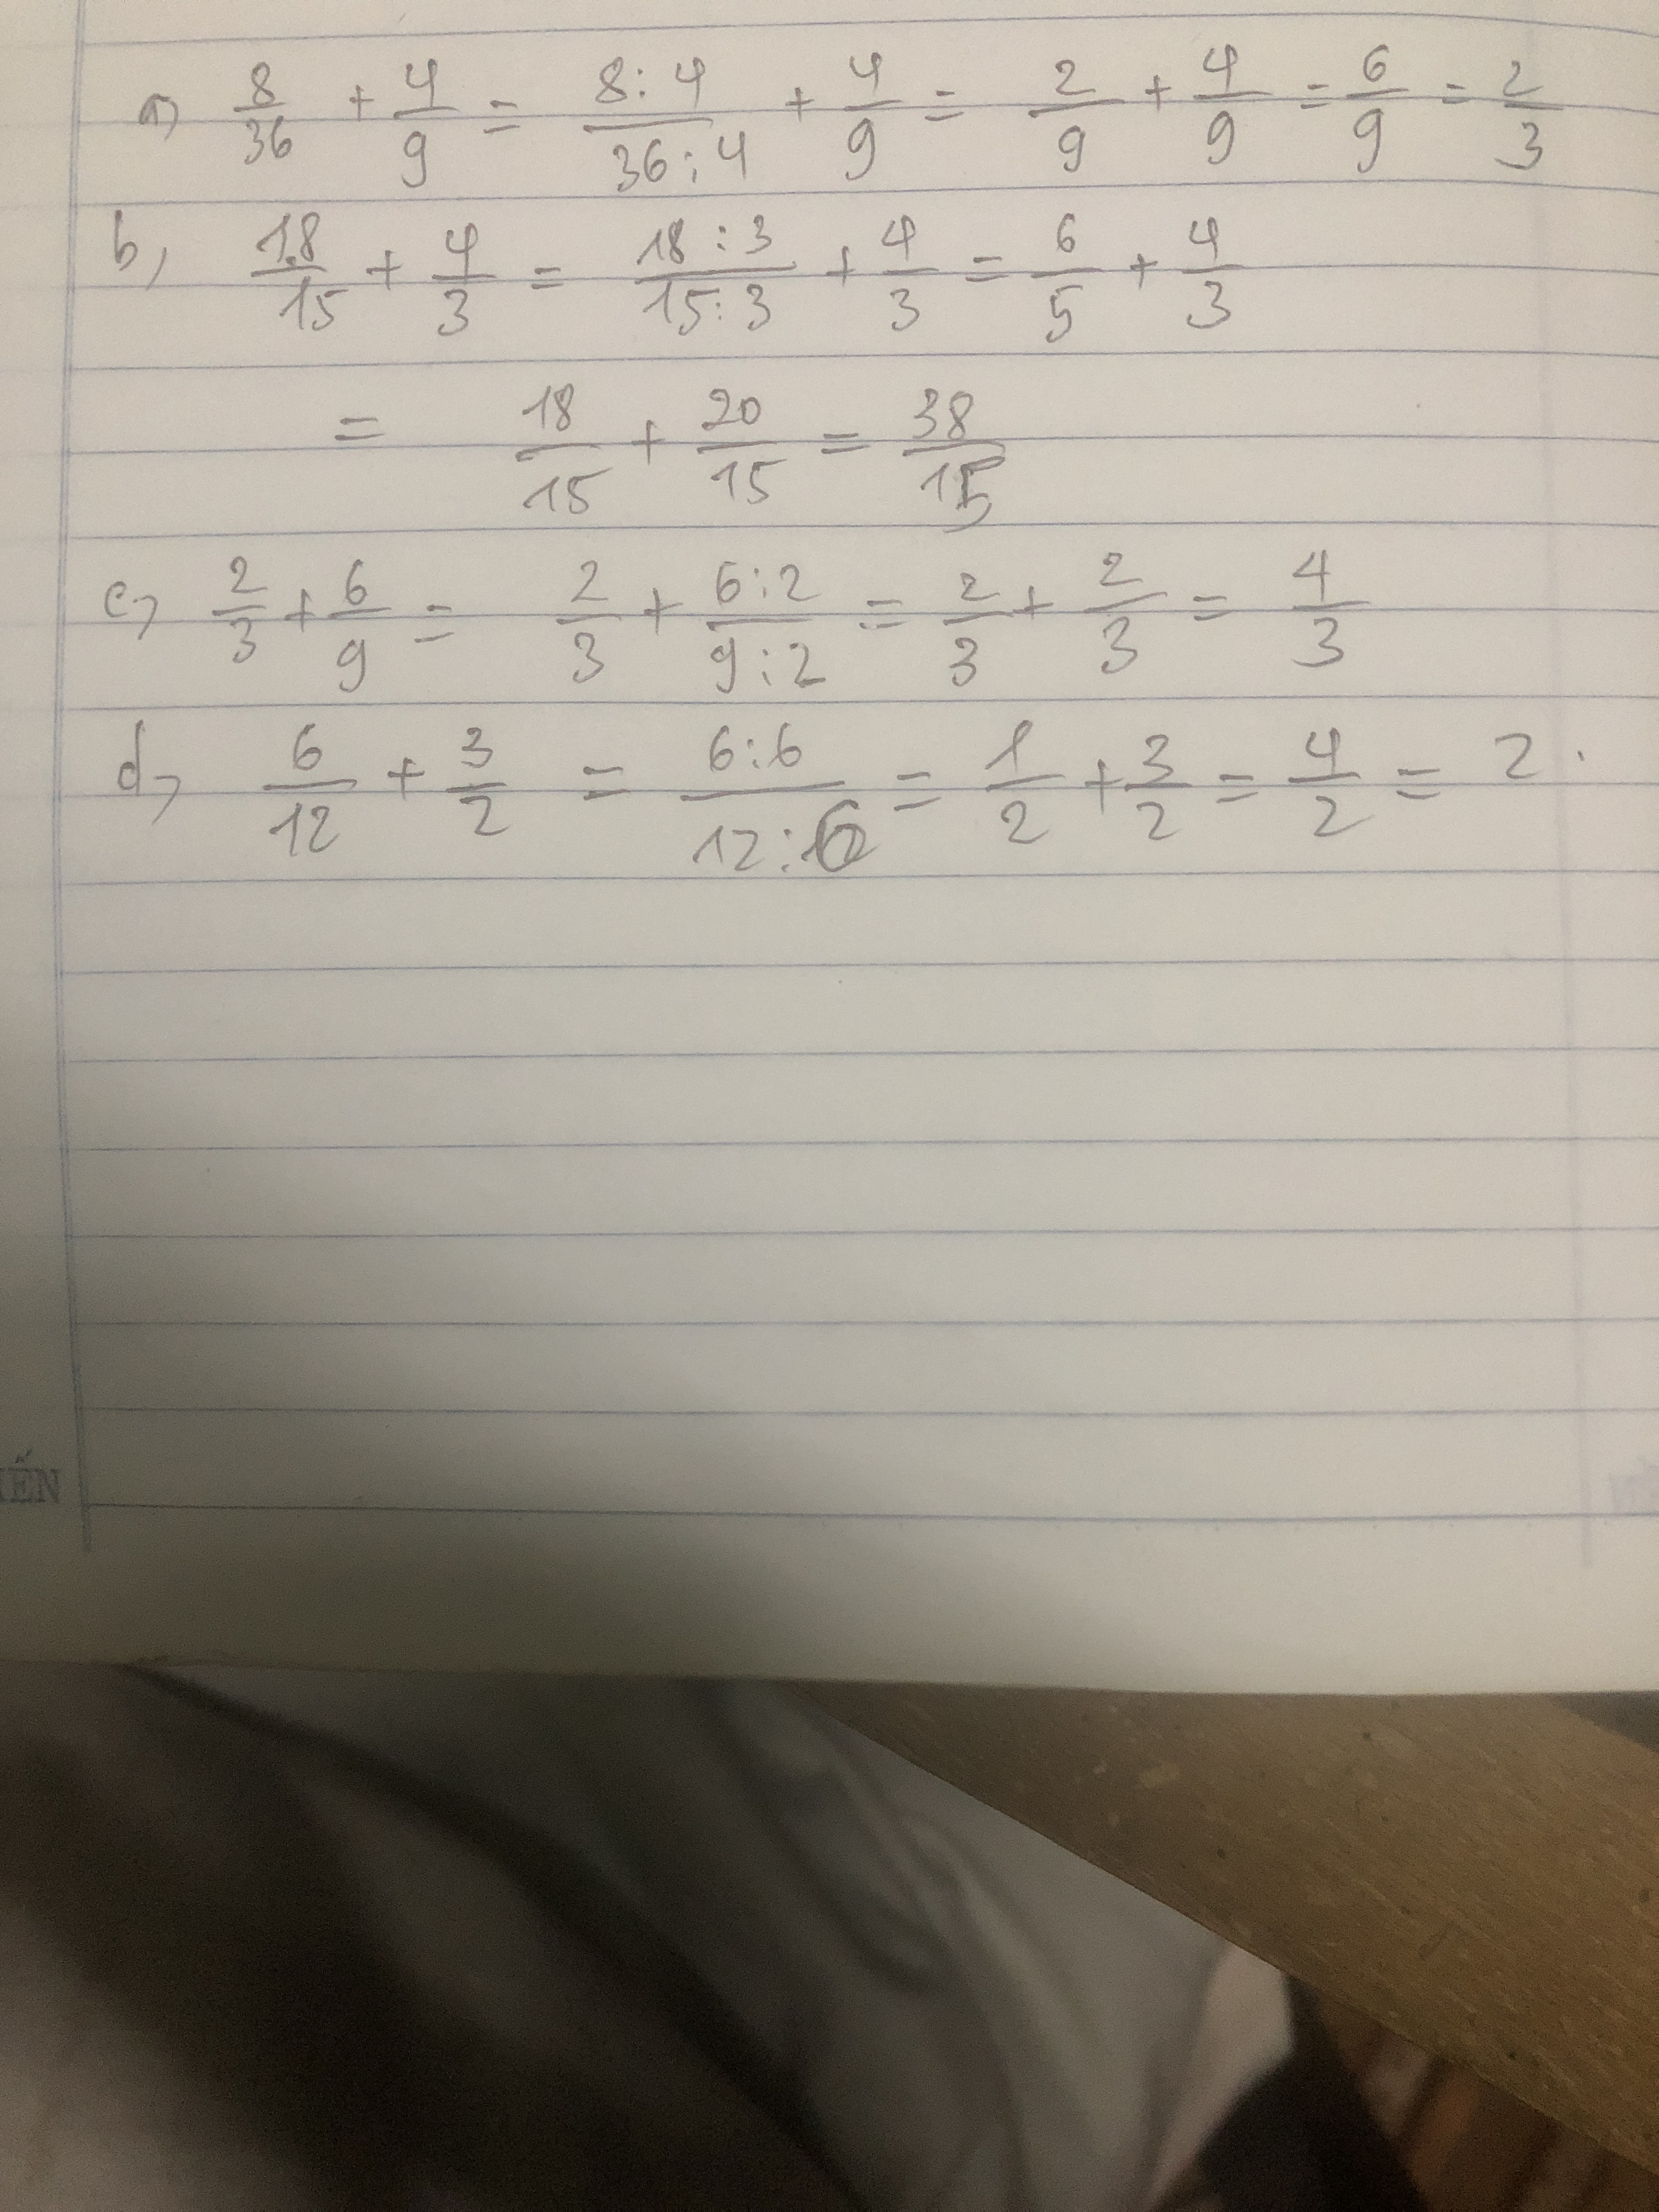 a, 8/36 + 4/9 = 8:4/36:4 + 4/9 = 2/9 + 4/9 = 6/9 = 2/3
b, 18/15 + 4/3 = 18:3/15:3 + 4/3 = 6/5 + 4/3
= 18/15 + 20/15 = 38/15
c, 2/3 + 6/9 = 2/3 + 6:2/9:2 = 2/3 + 2/3 = 4/3
d, 6/12 + 3/2 = 6:6/12:6 = 1/2 + 3/2 = 4/2 = 2.
IẾN